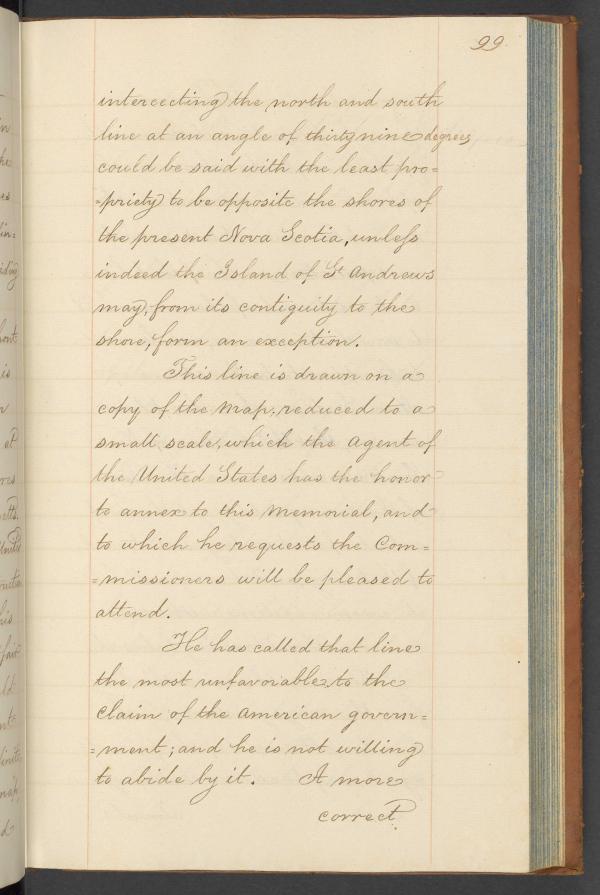 99.
intercecting the north and south
line at an angle of thirty nine degrees
could be said with the least pro=
=priety to be opposite the shores of
the present Nova Scotia, unless
indeed the Island of St Andrews
may, from its contiguity to the
shore, form an exception.
This line is drawn on a
copy of the map, reduced to a
small scale, which the agent of
the United States has the honor
to annex to this memorial, and
to which he requests the Com=
=missioners will be pleased to
attend.
He has called that line
the most unfavorable to the
claim of the american govern=
=ment; and he is not willing
to abide by it. A more
correct